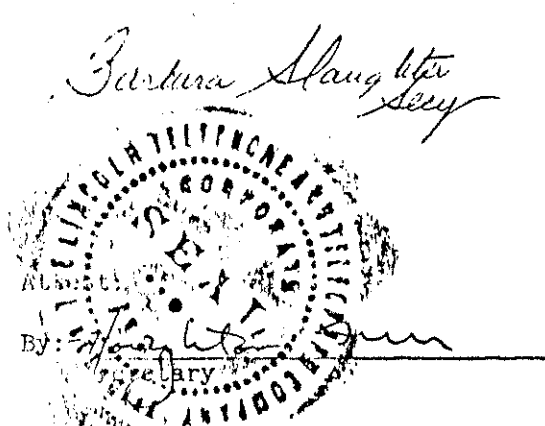 Barbara Slaughter
Secy
THE LINCOLN TELEPHONE AND TELEGRAPH COMPANY
CORPORATE
SEAL
Attest:
By:
Secretary